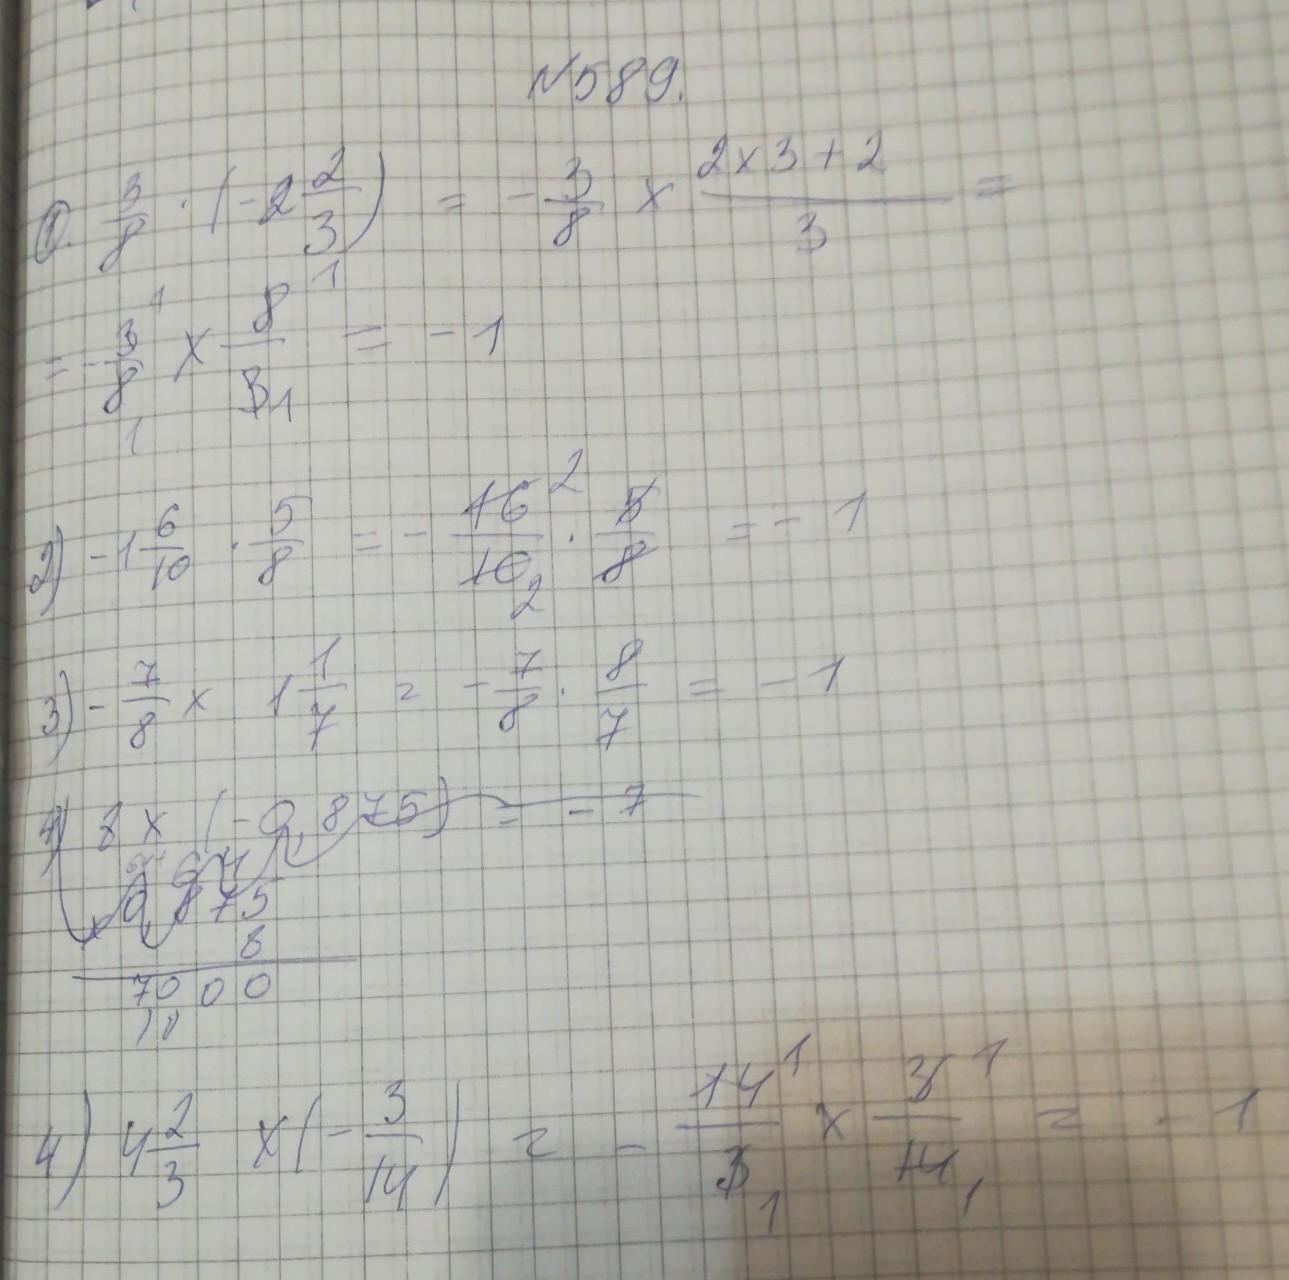 N589.
1. 3/8 · (-2 2/3) = - 3/8 × 2×3+2/3 =
= - 3/8 × 8/3 = - 1
2) -1 6/10 · 5/8 = - 16/10 · 5/8 = - 1
3) - 7/8 × 1 1/7 = - 7/8 · 8/7 = - 1
4) 8 × (-0,875) = - 7
× 0,875
8
7000
4) 4 2/3 × (- 3/14) = - 14/3 × 3/14 = - 1